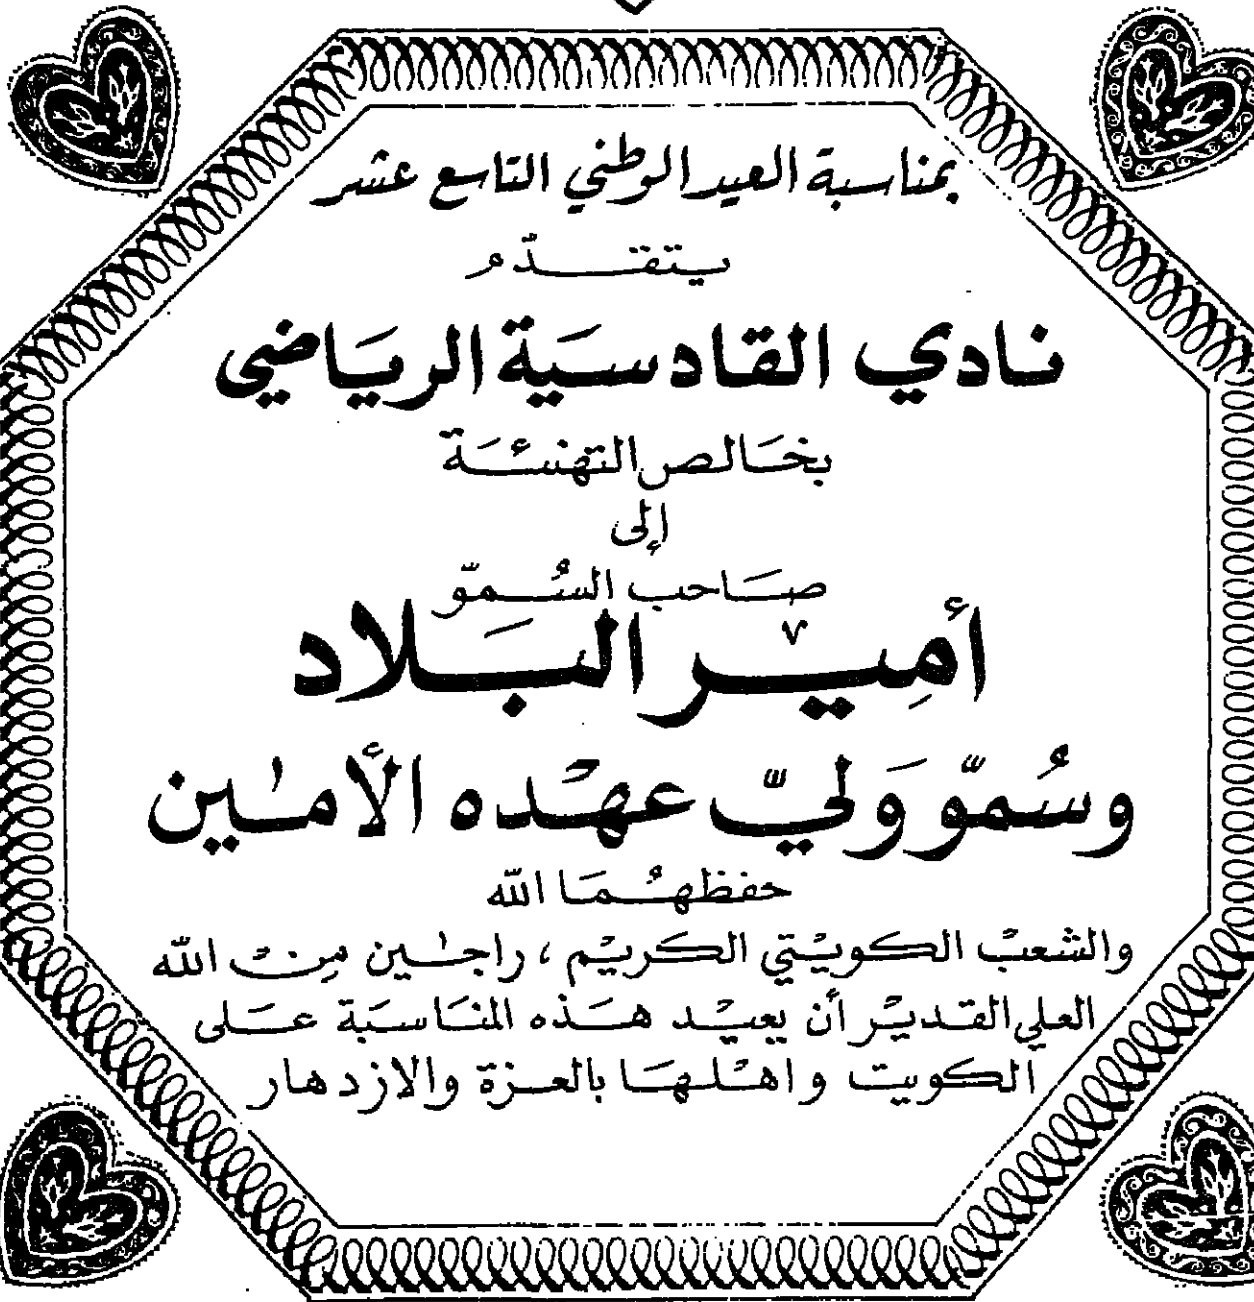 بمناسبة العيد الوطني التاسع عشر
يتقدّم
نادي القادسية الرياضي
بخالص التهنئة
إلى
صاحب السُموّ
أمِير البَلاد
وسُموّ وَليّ عهْده الأمين
حفظهُمَا الله
والشعبْ الكويْتي الكريْم ، راجين مِنْ الله
العلي القديْر أن يعيْد هَذه المنَاسبَة عَلى
الكويت واهْلهَا بالعزة والازدهار